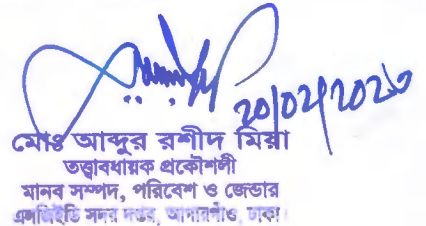 ২০/০২/২০২৩
মোঃ আব্দুর রশীদ মিয়া
তত্ত্বাবধায়ক প্রকৌশলী
মানব সম্পদ, পরিবেশ ও জেন্ডার
এলজিইডি সদর দপ্তর, আগারগাঁও, ঢাকা।